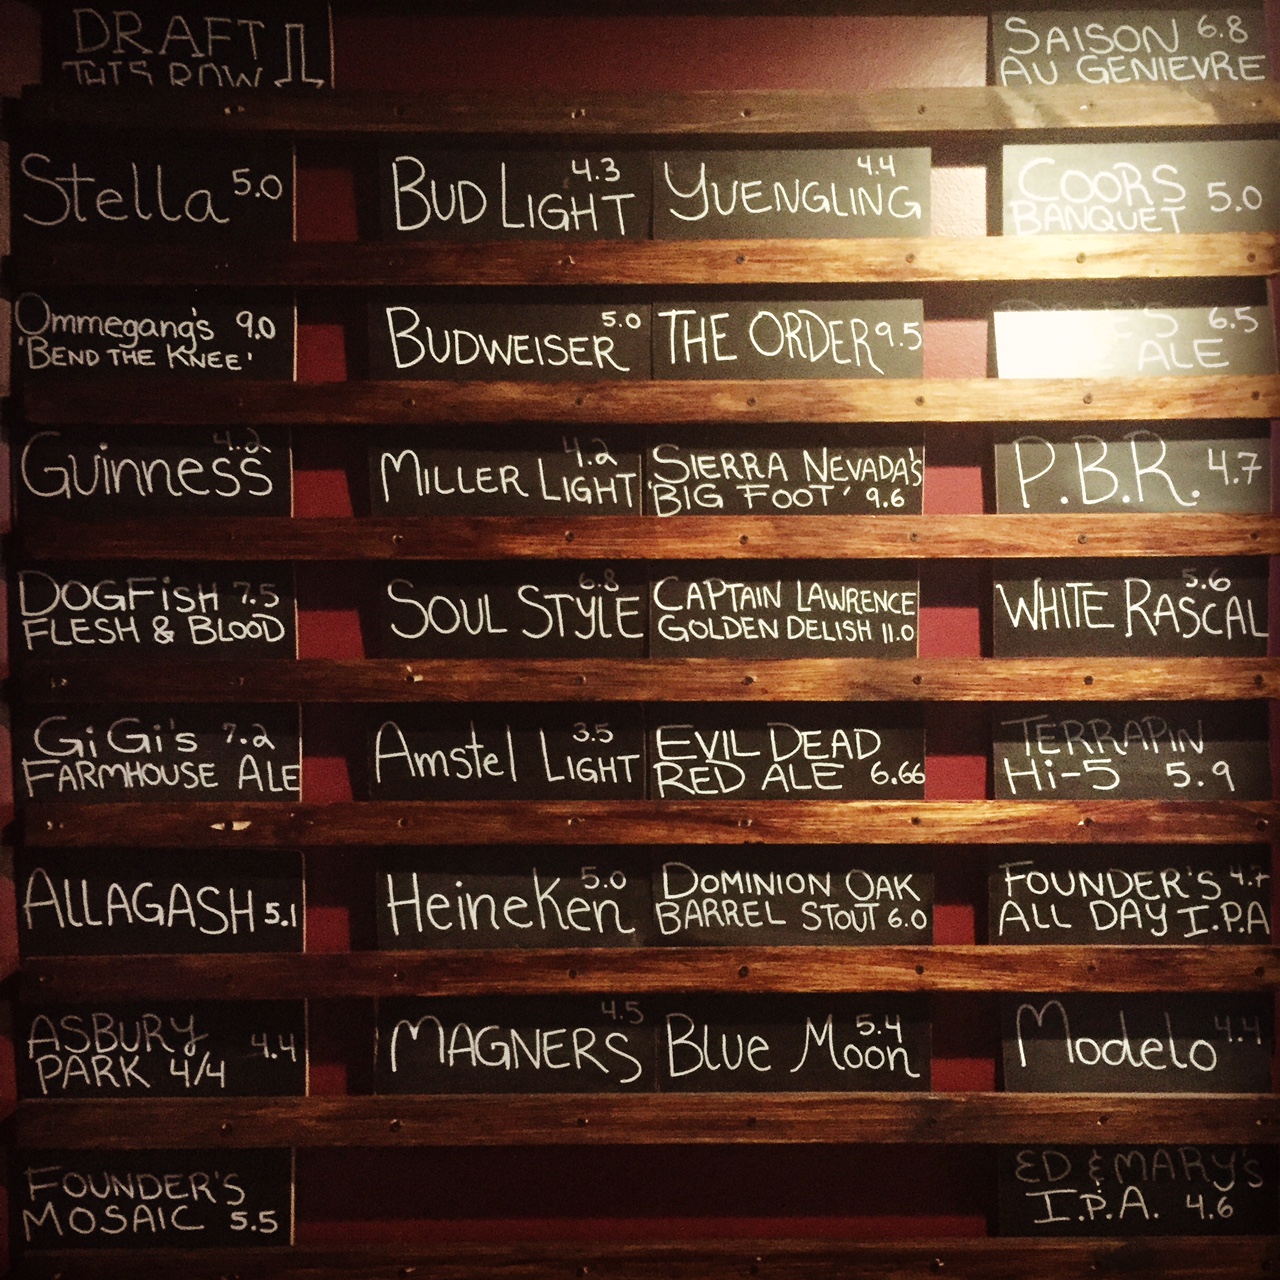 DRAFT
THIS ROW
Stella 5.0
Ommegang's 9.0
'BEND THE KNEE'
Guinness 4.2
DOGFISH 7.5
FLESH & BLOOD
GiGi's 7.2
FARMHOUSE ALE
ALLAGASH 5.1
ASBURY
PARK 4/4 4.4
FOUNDER'S
MOSAIC 5.5
BUD LIGHT 4.3
BUDWEISER 5.0
MILLER LIGHT 4.2
SOUL STYLE 6.8
Amstel LIGHT 3.5
HeineKen 5.0
MAGNERS 4.5
YUENGLING 4.4
THE ORDER 9.5
SIERRA NEVADA'S
'BIG FOOT' 9.6
CAPTAIN LAWRENCE
GOLDEN DELISH 11.0
EVIL DEAD
RED ALE 6.66
DOMINION OAK
BARREL STOUT 6.0
Blue Moon 5.4
SAISON 6.8
AU GENIEVRE
COORS
BANQUET 5.0
6.5
ALE
P.B.R. 4.7
WHITE RASCAL 5.6
TERRAPIN
Hi-5 5.9
FOUNDER'S 4.7
ALL DAY I.P.A
Modelo 4.4
ED & MARY'S
I.P.A. 4.6